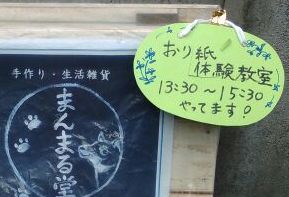 手作り・生活雑貨
まんまる堂
おり紙
体験教室
13:30～15:30
やってます!